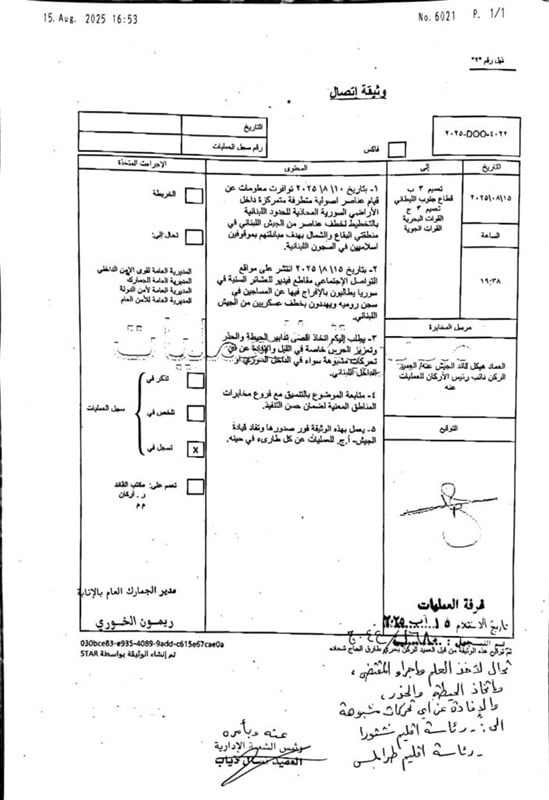 15. Aug. 2025 16:53
No. 6021 P. 1/1
ذيل رقم "٣"
وثيقة إتصال
التاريخ
رقم سجل العمليات
فاكس
٢٠٢٥-DOO-٤٠٢٢
التاريخ
٢٠٢٥/٠٨/١٥
الساعة
١٩:٣٨
إلى
تعميم ٣ ب
قطاع جنوب الليطاني
تعميم ٣ ج
القوات البحرية
القوات الجوية
مرسل المخابرة
العماد هيكل قائد الجيش عنه/ العميد
الركن نائب رئيس الأركان للعمليات
عنه
التوقيع
المحتوى
١- بتاريخ ١٠/ ٨/ ٢٠٢٥ توافرت معلومات عن
قيام عناصر اصولية متطرفة متمركزة داخل
الأراضي السورية المحاذية للحدود اللبنانية
بالتخطيط لخطف عناصر من الجيش اللبناني في
منطقتي البقاع والشمال بهدف مبادلتهم بموقوفين
اسلاميين في السجون اللبنانية.
٢- بتاريخ ١٥/ ٨/ ٢٠٢٥ انتشر على مواقع
التواصل الإجتماعي مقاطع فيديو للعشائر السنية في
سوريا يطالبون بالإفراج فيها عن المساجين في
سجن روميه ويهددون بخطف عسكريين من الجيش
اللبناني.
٣- يطلب إليكم اتخاذ اقصى تدابير الحيطة والحذر
وتعزيز الحرس خاصة في الليل والإفادة عن أي
تحركات مشبوهة سواء في الداخل السوري أو
الداخل اللبناني.
٤- متابعة الموضوع بالتنسيق مع فروع مخابرات
المناطق المعنية لضمان حسن التنفيذ.
٥- يعمل بهذه الوثيقة فور صدورها وتفاد قيادة
الجيش- أ.ج. للعمليات عن كل طارىء في حينه.
الإجراءات المتخذة
الخريطة
تحال إلى:
المديرية العامة لقوى الأمن الداخلي
المديرية العامة للجمارك
المديرية العامة لأمن الدولة
المديرية العامة للأمن العام
تذكر في
تلخص في
سجل العمليات
تسجل في
X
تعمم على: مكتب القائد
ر. أركان
م م
مدير الجمارك العام بالإنابة
ريمون الخوري
030bce83-e935-4089-9add-c615e67cae0a
تم إنشاء الوثيقة بواسطة STAR
غرفة العمليات
تاريخ الاستلام ١٥ آب ٢٠٢٥
تم توقيع هذه الوثيقة من قبل العميد الركن بحري طارق الحاج شحاده
تحال لأخذ العلم وإجراء المقتضى،
واتخاذ الحيطة والحذر،
والإفادة عن أي تحركات مشبوهة
الى: - رئاسة اقليم شتورا
- رئاسة اقليم طرابلس
عنه وبأمره
رئيس الشعبة الإدارية
العميد نضال دياب